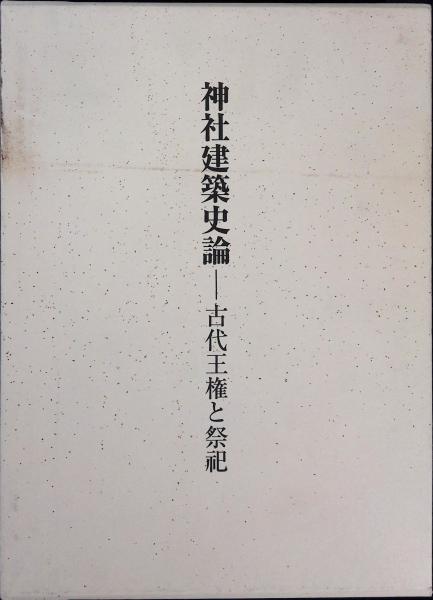 神社建築史論―古代王権と祭祀